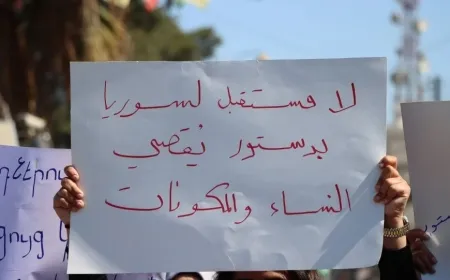 لا مستقبل لسوريا
بدستور يُقصي
النساء والمكونات